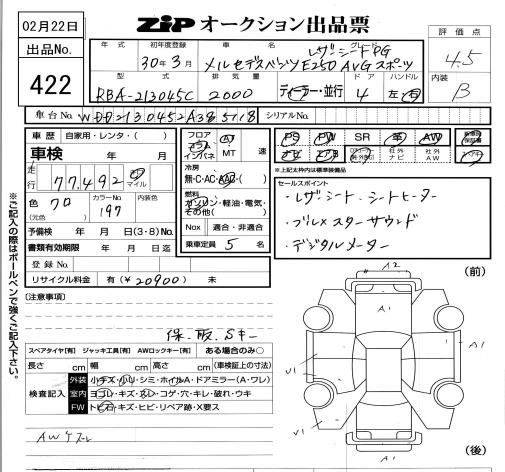 02月22日
ZIP オークション出品票
評価点
4.5
出品No.
422
年式
初年度登録
30年3月
車名
グレード
レザーシートPG
メルセデスベンツ E250 AVG スポーツ
型式
RBA-213045C
排気量
2000
ディーラー・並行
ドア
4
ハンドル
左・右
内装
B
車台No.
シリアルNo.
車歴
自家用・レンタ・( )
車検 年 月
走行
77,492
マイル
色
クロ
(元色)
カラーNo.
197
内装色
予備検 年 月 日(3・8)No.
書類有効期限 年 月 日迄
登録No.
リサイクル料金 有(¥20900) 未
フロア
コラム
インパネ
AT
MT
速
冷房
無・C・AC・AAC・( )
燃料
ガソリン・軽油・電気・
その他( )
Nox
適合・非適合
乗車定員 5 名
PS
PW
SR
革
AW
ナビ
社外
ナビ
社外
AW
※上記太枠内は標準装備品
セールスポイント
・レザーシート シートヒーター
・ブルメスターサウンド
・デジタルメーター
※ご記入の際はボールペンで強くご記入下さい。
[注意事項]
保、取、Sキー
スペアタイヤ[有] ジャッキ工具[有] AWロックキー[有] ある場合のみ○
長さ cm 幅 cm 高さ cm (車検証上の寸法)
検査記入
外装 小キズ・小凹・シミ・ホイルA・ドアミラー(A・ワレ)
室内 ヨゴレ・キズ・スレ・コゲ・穴・キレ・破れ・ウキ
FW トビ石・キズ・ヒビ・リペア跡・X要ス
AWケズレ
(前)
A2
A1
A1
V1
V1
A1
(後)